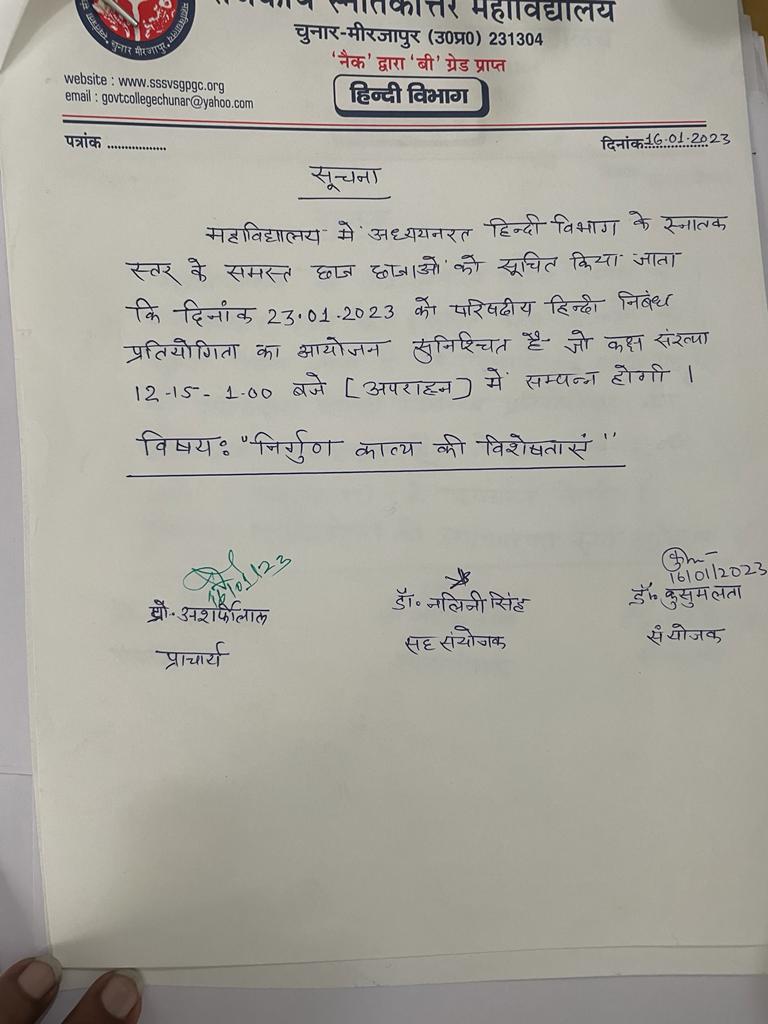 स्नातकोत्तर महाविद्यालय
चुनार-मीरजापुर (उ0प्र0) 231304
'नैक' द्वारा 'बी' ग्रेड प्राप्त
website : www.sssvsgpgc.org
email : govtcollegechunar@yahoo.com
हिन्दी विभाग
पत्रांक ................
दिनांक 16.01.2023
सूचना
महाविद्यालय में अध्ययनरत हिन्दी विभाग के स्नातक
स्तर के समस्त छात्र छात्राओं को सूचित किया जाता
कि दिनांक 23.01.2023 को परिषदीय हिन्दी निबंध
प्रतियोगिता का आयोजन सुनिश्चित है जो कक्ष संख्या
12-15- 1.00 बजे [अपराहन] में सम्पन्न होगी ।
विषयः "निर्गुण काव्य की विशेषताएं"
16/01/23
प्रो. अशर्फीलाल
प्राचार्य
डॉ. नलिनी सिंह
सह संयोजक
16/01/2023
डॉ. कुसुमलता
संयोजक
चुनार मीरजापुर